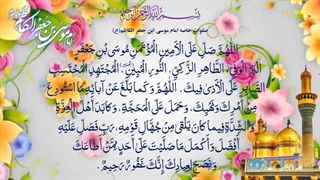 بِسْمِ اللَّهِ الرَّحْمَنِ الرَّحِيمِ
صلوات خاصه امام موسی ابن جعفر الکاظم(ع)
اللَّهُمَّ صَلِّ عَلَى الْأَمِينِ الْمُؤْتَمَنِ مُوسَى بْنِ جَعْفَرٍ
الْبَرِّ الْوَفِيِّ الطَّاهِرِ الزَّكِيِّ النُّورِ الْمُبِينِ الْمُجْتَهِدِ الْمُحْتَسِبِ
الصَّابِرِ عَلَى الْأَذَى فِيكَ اللَّهُمَّ وَ كَمَا بَلَّغَ عَنْ آبَائِهِ مَا اسْتُودِعَ
مِنْ أَمْرِكَ وَ نَهْيِكَ وَ حَمَلَ عَلَى الْمَحَجَّةِ وَ كَابَدَ أَهْلَ الْعِزَّةِ
وَ الشِّدَّةِ فِيمَا كَانَ يَلْقَى مِنْ جُهَّالِ قَوْمِهِ رَبِّ فَصَلِّ عَلَيْهِ
أَفْضَلَ وَ أَكْمَلَ مَا صَلَّيْتَ عَلَى أَحَدٍ مِمَّنْ أَطَاعَكَ
وَ نَصَحَ لِعِبَادِكَ إِنَّكَ غَفُورٌ رَحِيمٌ